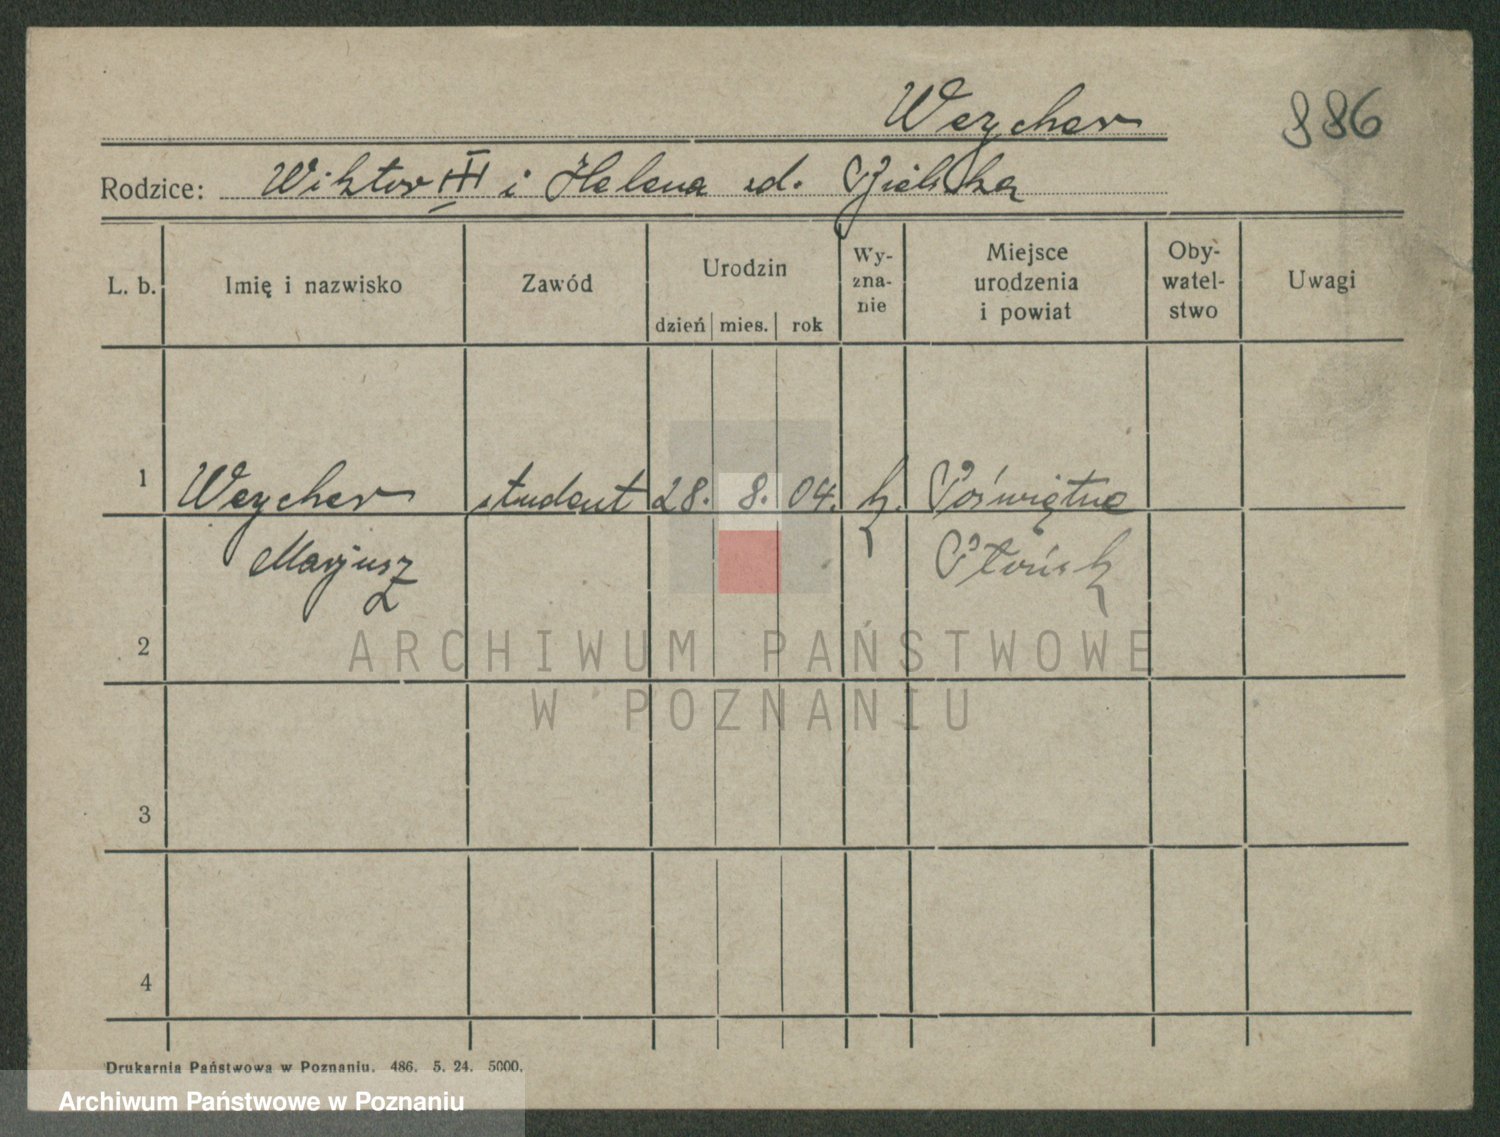 Weycher 886
Rodzice: Wiktor III i Helena zd.
L. b. Imię i nazwisko Zawód Urodzin dzień mies. rok Wy-zna-nie Miejsce urodzenia i powiat Oby-watel-stwo Uwagi
1 Weycher student 28. 8. 04. k. Poświętne
Marjusz Płońsk
2
3
4
ARCHIWUM PAŃSTWOWE
W POZNANIU
Drukarnia Państwowa w Poznaniu. 486. 5. 24. 5000.
Archiwum Państwowe w Poznaniu